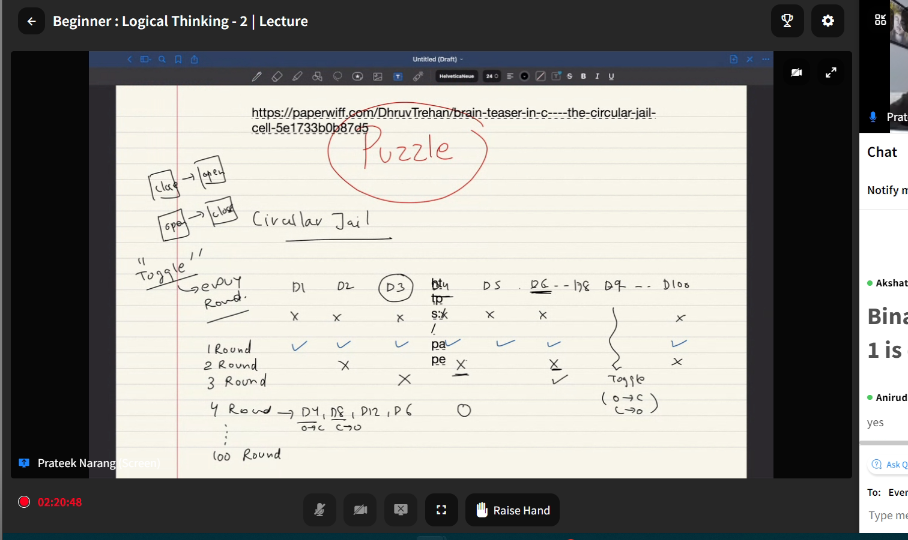 Beginner : Logical Thinking - 2 | Lecture
Untitled (Draft)
HelveticaNeue 24 B I U
https://paperwiff.com/DhruvTrehan/brain-teaser-in-c----the-circular-jail-
cell-5e1733b0b87d5
Puzzle
close → open
open → close
Circular Jail
"Toggle"
every
Round.
D1 D2 D3 D4 D5 D6 -- D8 D9 -- D100
ht
tp
s:/
/
pa
pe
x x x x x x x
1 Round ✓ ✓ ✓ ✓ ✓ ✓ ✓
2 Round x x x x
3 Round x ✓ Toggle
(O→C
C→O)
4 Round → D4, D8, D12, D6 O
O→C C→O
100 Round
Prateek Narang (Screen)
02:20:48
Raise Hand
Prate
Chat
Notify m
Akshat
Bina
1 is
Anirud
yes
Ask Q
To: Ever
Type me